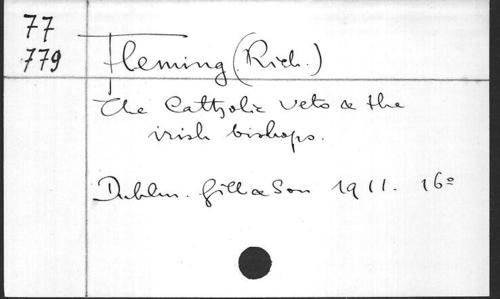 77
779
Fleming (Rich.)
The Catholic Veto & the
irish bishops.
Dublin. Gill & Son 1911. 16º